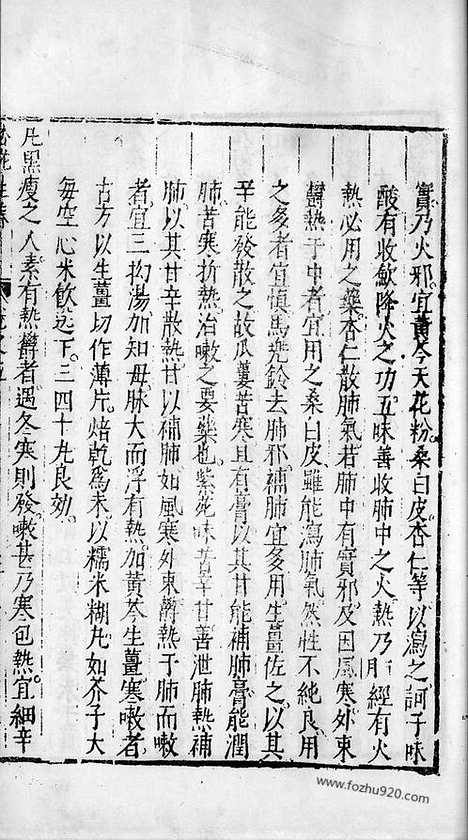 實乃火邪宜黃芩天花粉桑白皮杏仁等以瀉之訶子味
酸有收斂降火之功五味善收肺中之火熱乃肺經有火
熱必用之藥杏仁散肺氣若肺中有實邪及因風寒外束
欝熱于中者宜用之桑白皮雖能瀉肺氣然性不純良用
之多者宜慎馬兠鈴去肺邪補肺宜多用生薑佐之以其
辛能發散之故瓜蔞苦寒且有膏以其甘能補肺膏能潤
肺苦寒折熱治嗽之要藥也紫菀味苦辛甘善泄肺熱補
肺以其甘辛散熱甘以補肺如風寒外束欝熱于肺而嗽
者宜三拗湯加知母脉大而浮有熱加黃芩生薑寒嗽者
古方以生薑切作薄片焙乾爲末以糯米糊丸如芥子大
每空心米飲送下三四十丸良効
凡黑瘦之人素有熱欝者遇冬寒則發嗽甚乃寒包熱宜細辛
www.fozhu920.com